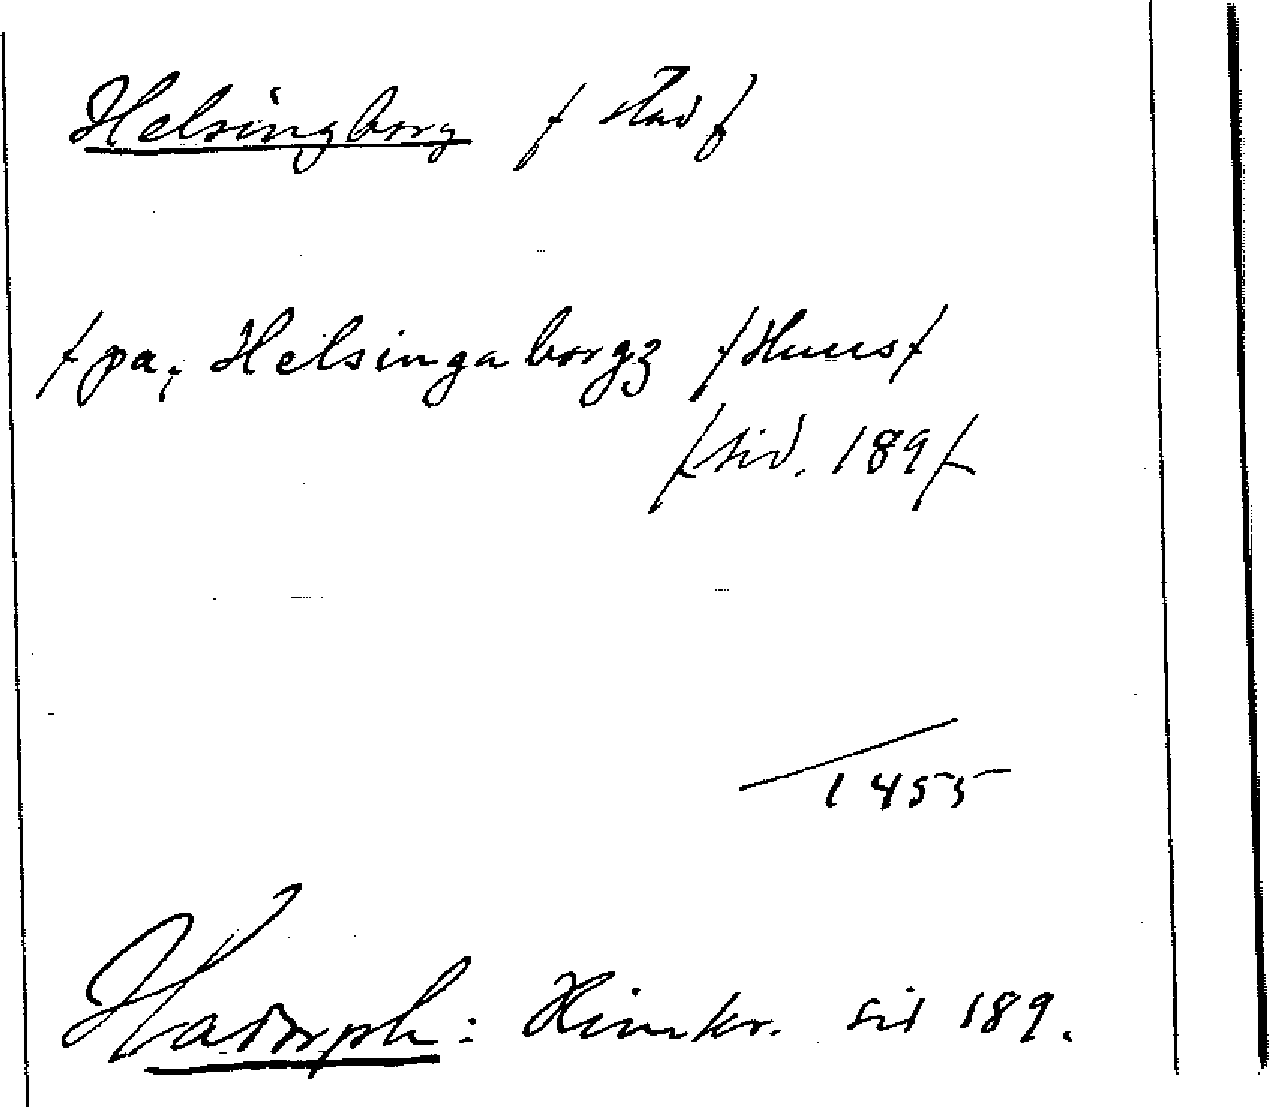 Helsingborg / stad /
/ pa, Helsingaborgz / Huus /
/ sid. 189 /
1455
Hadorph: Rimkr. sid 189.